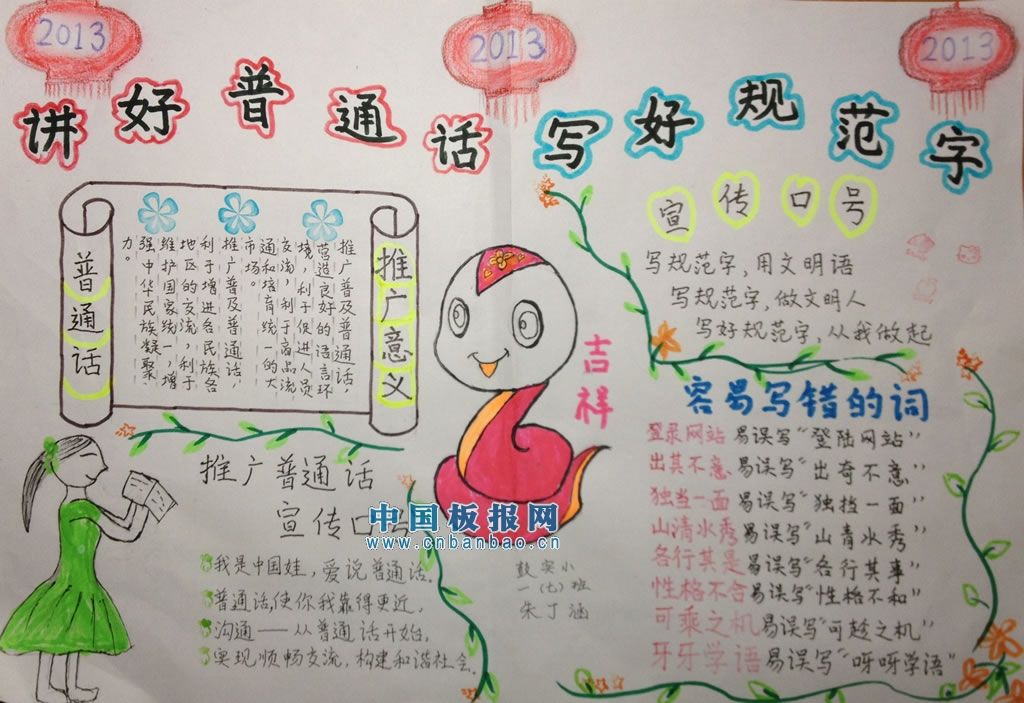 2013
2013
2013
讲好普通话
写好规范字
普通话
推广意义
推广普及普通话，
营造良好的语言环
境，利于促进人员
交流，利于商品流
通和培育统一的大
市场。
推广普及普通话，
利于增进各民族各
地区的交流，利于
维护国家统一，增
强中华民族凝聚
力。
宣传口号
写规范字，用文明语
写规范字，做文明人
写好规范字，从我做起
吉祥
容易写错的词
登录网站易误写“登陆网站”
出其不意易误写“出奇不意”
独当一面易误写“独挡一面”
山清水秀易误写“山青水秀”
各行其是易误写“各行其事”
性格不合易误写“性格不和”
可乘之机易误写“可趁之机”
牙牙学语易误写“呀呀学语”
推广普通话
宣传口号
我是中国娃，爱说普通话.
普通话，使你我靠得更近，
沟通——从普通话开始，
实现顺畅交流，构建和谐社会.
中国板报网
www.cnbanbao.cn
鼓实小
一（七）班
朱丁涵